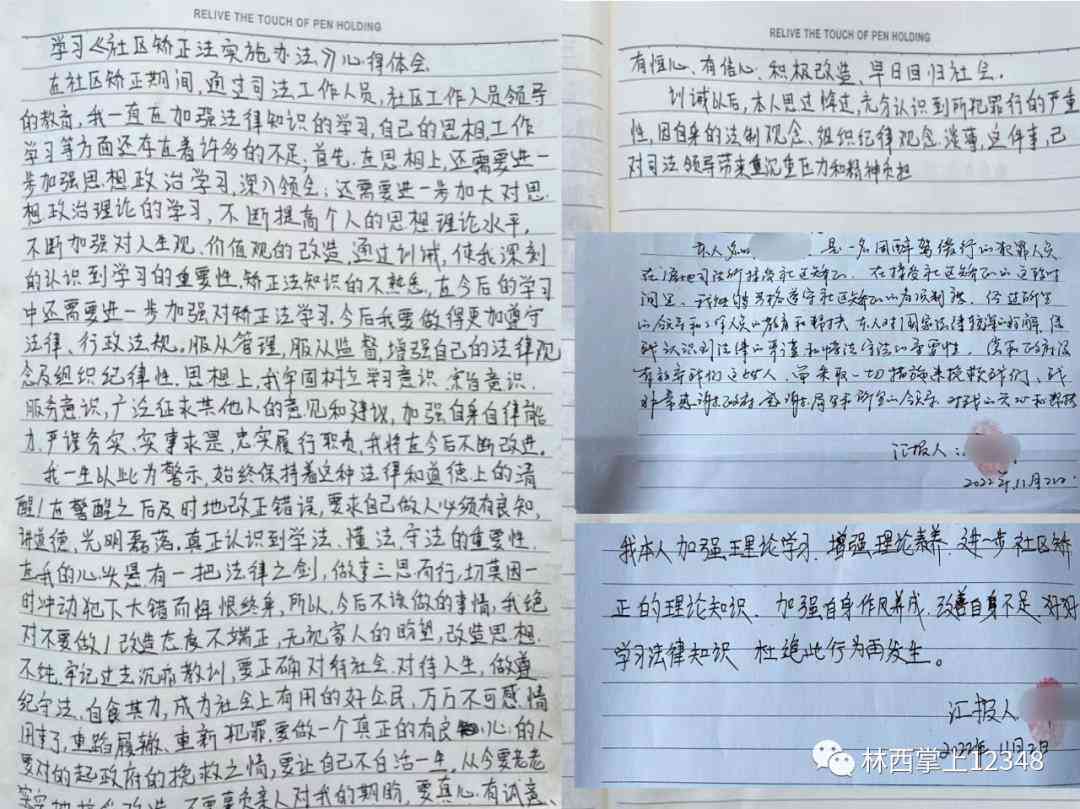 RELIVE THE TOUCH OF PEN HOLDING
学习《社区矫正法实施办法》心得体会
在社区矫正期间,通过司法工作人员,社区工作人员领导
的教育,我一直在加强法律知识的学习,自己的思想工作
学习等方面还存在着许多的不足,首先,在思想上,还需要进一
步加强思想政治学习,深入领会;还需要进一步加大对思
想政治理论的学习,不断提高个人的思想理论水平,
不断加强对人生观、价值观的改造,通过训诫,使我深刻
的认识到学习的重要性,矫正法知识的不熟悉,在今后的学习
中还需要进一步加强对矫正法学习,今后我要做得更加遵守
法律、行政法规。服从管理,服从监督,增强自己的法律观
念及组织纪律性,思想上,我牢固树立学习意识、宗旨意识、
服务意识,广泛征求其他人的意见和建议,加强自身自律能
力,严谨务实、实事求是,忠实履行职责,我将在今后不断改进。
我一生以此为警示,始终保持着这种法律和道德上的清
醒!在警醒之后及时地改正错误,要求自己做人必须有良知,
讲道德、光明磊落,真正认识到学法、懂法、守法的重要性,
在我的心头悬有一把法律之剑,做事三思而行,切莫因一
时冲动犯下大错而悔恨终身,所以,今后不该做的事情,我绝
对不要做!改造态度不端正,无视家人的盼望,改造思想
不纯,牢记过去沉痛教训,要正确对待社会,对待人生,做遵
纪守法、自食其力,成为社会上有用的好公民,万万不可感情
用事,重蹈履辙、重新犯罪,要做一个真正的有良心的人
要对的起政府的挽救之情,要让自己不白活一生。从今要老老
实实地接受改造,不要辜负亲人对我的期盼,要真心、有诚意、
RELIVE THE TOUCH OF PEN HOLDING
有恒心、有信心、积极改造、早日回归社会。
训诫以后,本人思过悔过,充分认识到所犯罪行的严重
性,因自身的法制观念、组织纪律观念,淡薄,这件事,已
对司法领导带来重沉重压力和精神负担
本人 是一名因醉驾缓行的犯罪人员
在 司法所接受社区矫正,在接受社区矫正的这段时
间里,我 能严格遵守社区矫正的有关制度,经过所里
的领导和工作人员的教育和帮扶,本人对国家法律 的了解,使
我认识到法律的 守法的重要性,党和政府没
有放弃我们这些人,而采取一切措施来挽救我们,我
非常感谢政府,感谢 所里的领导,对我的关心和帮扶
汇报人:
2022年11月2日
我本人加强理论学习,增强理论素养,进一步社区矫
正的理论知识、加强自身作风养成,改善自身不足,好好
学习法律知识 杜绝此行为再发生。
汇报人
2022年11月2日
林西掌上12348